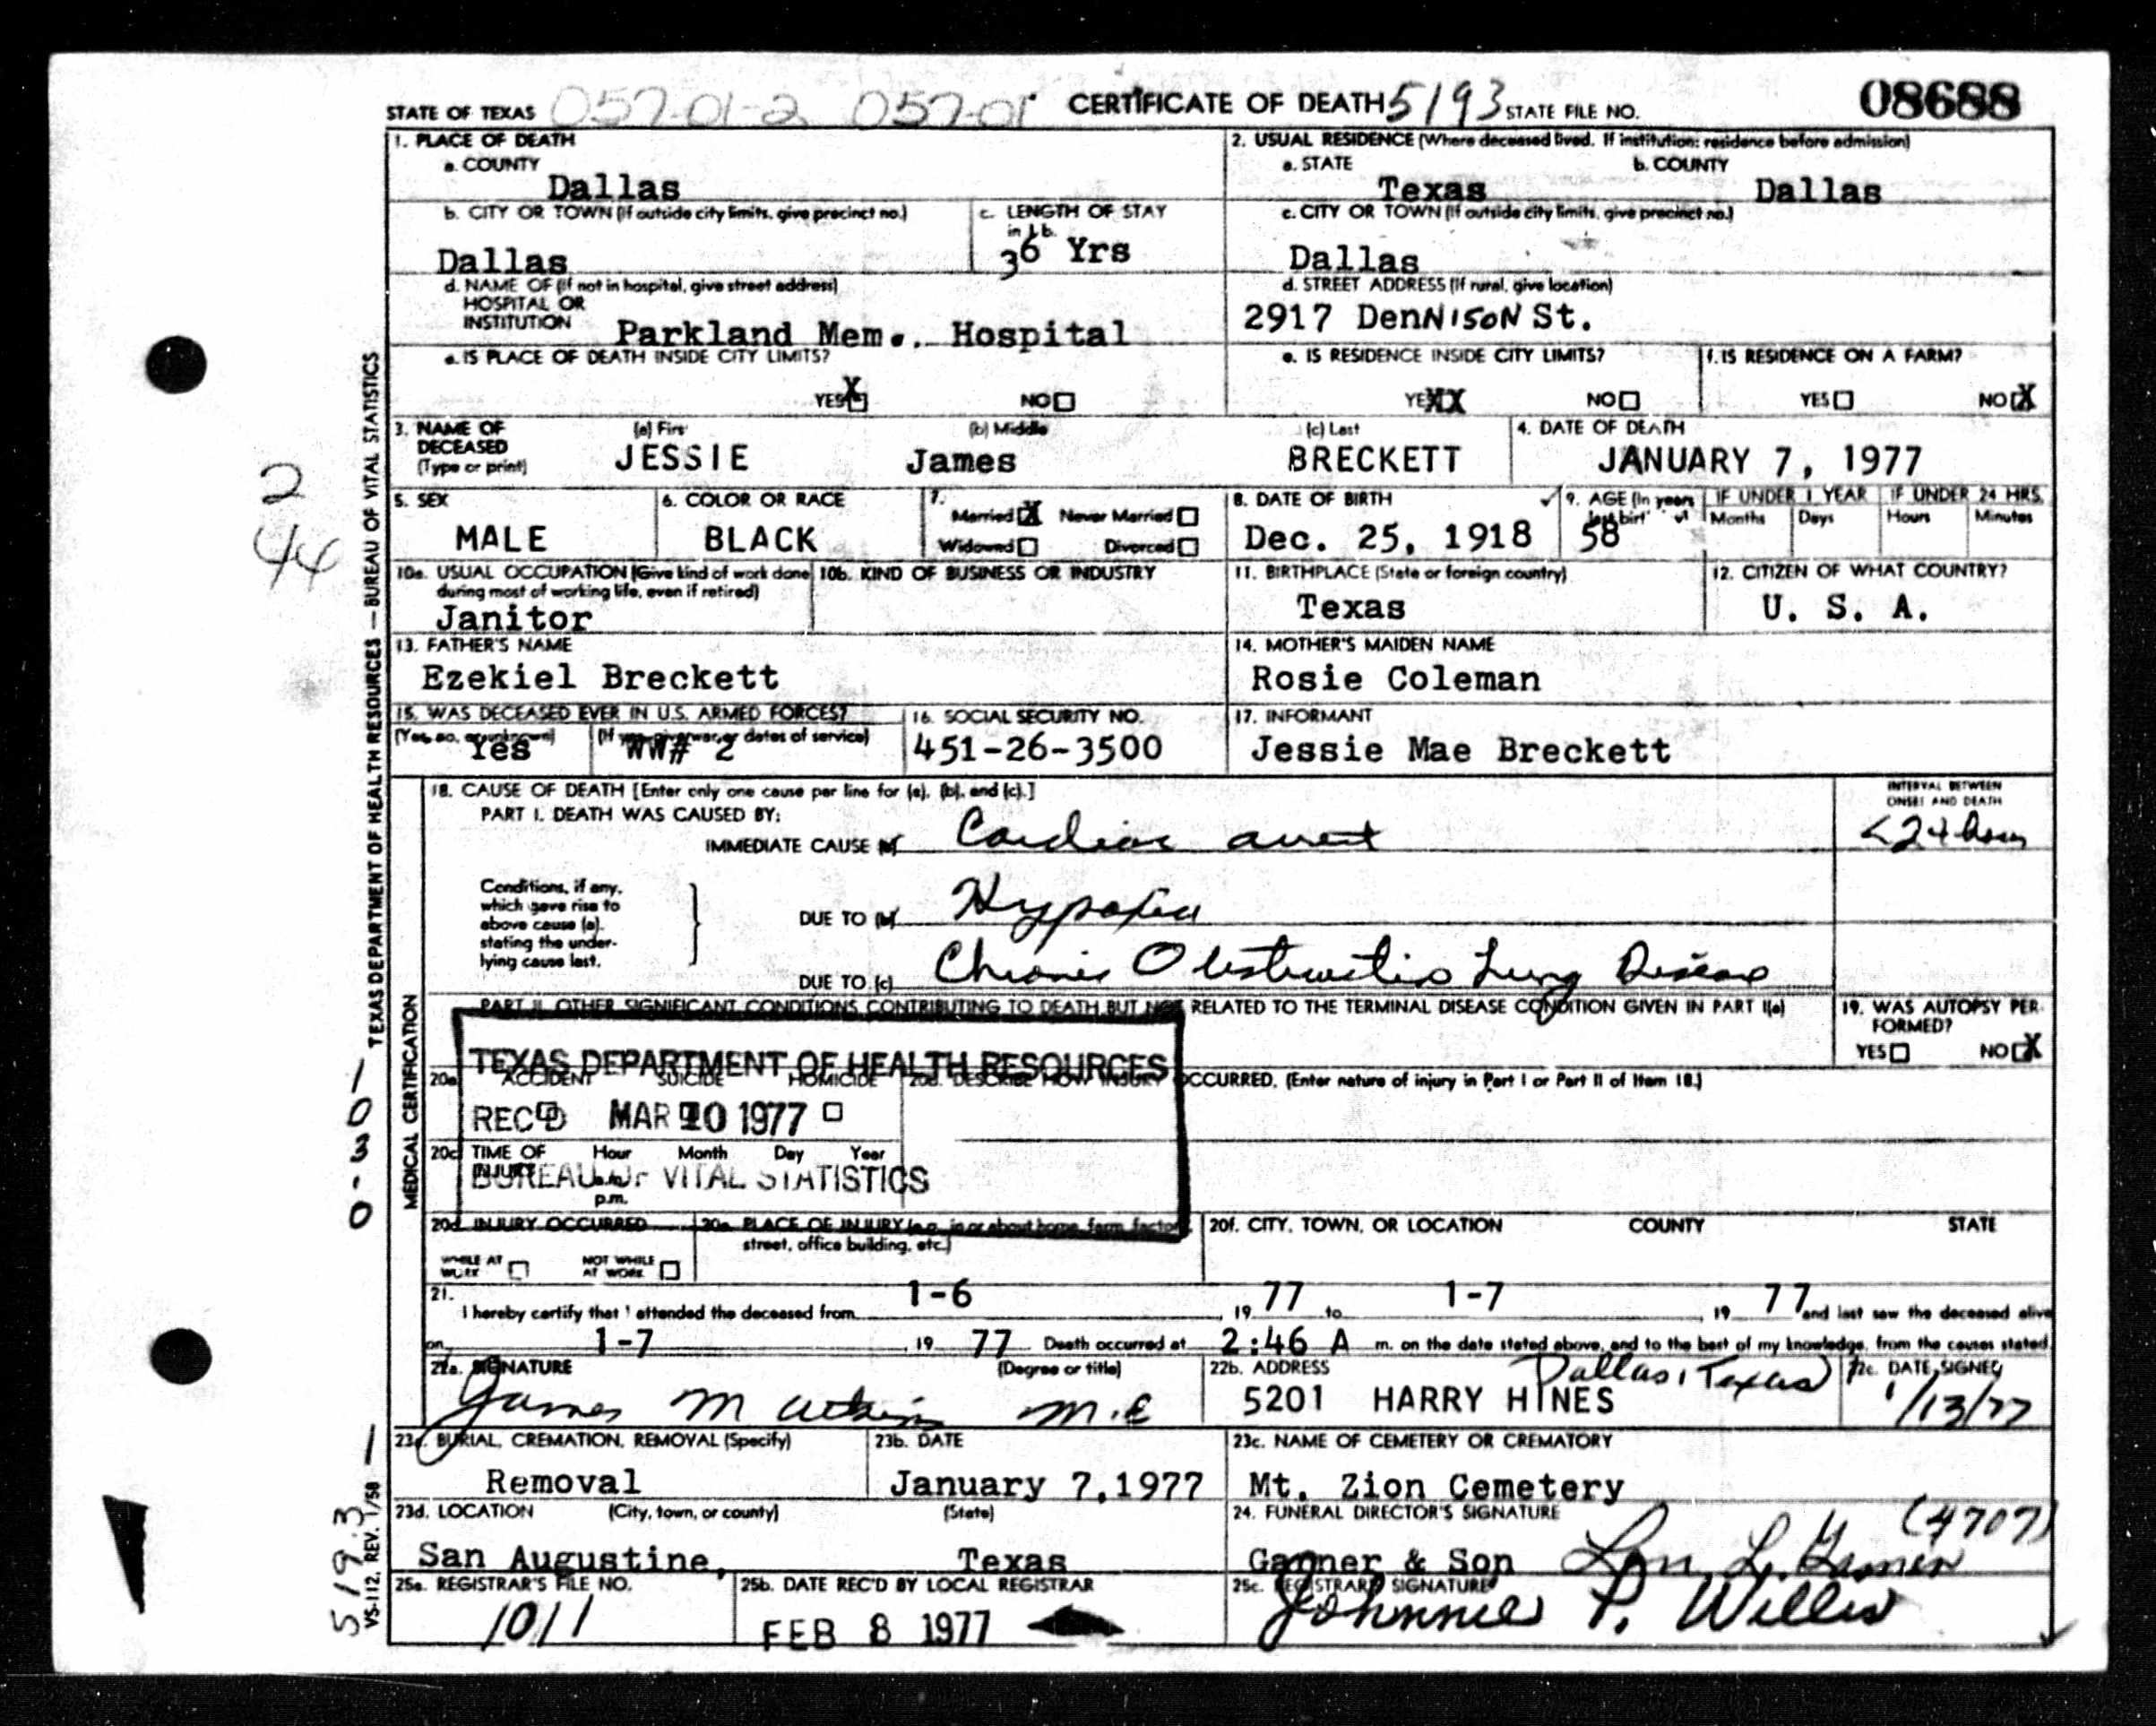 STATE OF TEXAS 057-01-2 057-01 CERTIFICATE OF DEATH 5193 STATE FILE NO. 08688
1. PLACE OF DEATH
a. COUNTY
Dallas
2. USUAL RESIDENCE (Where deceased lived. If institution: residence before admission)
a. STATE b. COUNTY
Texas Dallas
b. CITY OR TOWN (If outside city limits, give precinct no.)
Dallas
c. LENGTH OF STAY
in 1b.
36 Yrs
c. CITY OR TOWN (If outside city limits, give precinct no.)
Dallas
d. NAME OF (If not in hospital, give street address)
HOSPITAL OR
INSTITUTION Parkland Mem., Hospital
d. STREET ADDRESS (If rural, give location)
2917 DenNISON St.
e. IS PLACE OF DEATH INSIDE CITY LIMITS?
YES X NO
e. IS RESIDENCE INSIDE CITY LIMITS?
YEXX NO
f. IS RESIDENCE ON A FARM?
YES NO X
3. NAME OF
DECEASED
(Type or print)
(a) Firs (b) Middle (c) Last
JESSIE James BRECKETT
4. DATE OF DEATH
JANUARY 7, 1977
5. SEX
MALE
6. COLOR OR RACE
BLACK
7.
Married X Never Married
Widowed Divorced
8. DATE OF BIRTH
Dec. 25, 1918
9. AGE (In years
last birt
58
IF UNDER 1 YEAR IF UNDER 24 HRS.
Months Days Hours Minutes
10a. USUAL OCCUPATION (Give kind of work done
during most of working life, even if retired)
Janitor
10b. KIND OF BUSINESS OR INDUSTRY
11. BIRTHPLACE (State or foreign country)
Texas
12. CITIZEN OF WHAT COUNTRY?
U. S. A.
13. FATHER'S NAME
Ezekiel Breckett
14. MOTHER'S MAIDEN NAME
Rosie Coleman
15. WAS DECEASED EVER IN U.S. ARMED FORCES?
(Yes, no, or unknown) (If yes, give war or dates of service)
Yes WW# 2
16. SOCIAL SECURITY NO.
451-26-3500
17. INFORMANT
Jessie Mae Breckett
18. CAUSE OF DEATH [Enter only one cause per line for (a), (b), and (c).]
PART I. DEATH WAS CAUSED BY:
IMMEDIATE CAUSE (a) Cardiac arrest
INTERVAL BETWEEN
ONSET AND DEATH
<24 hours
Conditions, if any,
which gave rise to
above cause (a),
stating the under-
lying cause last.
DUE TO (b) Hypoxia
DUE TO (c) Chronic Obstructive Lung Disease
PART II. OTHER SIGNIFICANT CONDITIONS CONTRIBUTING TO DEATH BUT NOT RELATED TO THE TERMINAL DISEASE CONDITION GIVEN IN PART I(a)
19. WAS AUTOPSY PER-
FORMED?
YES NO X
TEXAS DEPARTMENT OF HEALTH RESOURCES
REC'D MAR 10 1977
BUREAU OF VITAL STATISTICS
20a. ACCIDENT SUICIDE HOMICIDE
20b. DESCRIBE HOW INJURY OCCURRED. (Enter nature of injury in Part I or Part II of Item 18.)
20c. TIME OF Hour Month Day Year
INJURY
p.m.
20d. INJURY OCCURRED
WHILE AT
WORK
NOT WHILE
AT WORK
20e. PLACE OF INJURY (e.g., in or about home, farm, factory,
street, office building, etc.)
20f. CITY, TOWN, OR LOCATION COUNTY STATE
21.
I hereby certify that I attended the deceased from 1-6, 19 77 to 1-7, 19 77 and last saw the deceased alive
on 1-7, 19 77 Death occurred at 2:46 A m. on the date stated above, and to the best of my knowledge, from the causes stated.
22a. SIGNATURE (Degree or title)
James M Atkins M.D.
22b. ADDRESS Dallas, Texas
5201 HARRY HINES
22c. DATE SIGNED
1/13/77
23a. BURIAL, CREMATION, REMOVAL (Specify)
Removal
23b. DATE
January 7,1977
23c. NAME OF CEMETERY OR CREMATORY
Mt. Zion Cemetery
23d. LOCATION (City, town, or county) (State)
San Augustine, Texas
24. FUNERAL DIRECTOR'S SIGNATURE (4707)
Garner & Son Lon L. Garner
25a. REGISTRAR'S FILE NO.
1011
25b. DATE REC'D BY LOCAL REGISTRAR
FEB 8 1977
25c. REGISTRAR'S SIGNATURE
Johnnie P. Willis
TEXAS DEPARTMENT OF HEALTH RESOURCES — BUREAU OF VITAL STATISTICS
MEDICAL CERTIFICATION
VS-112, REV. 1/58
2
44
1 0 3 - 0
1
5193